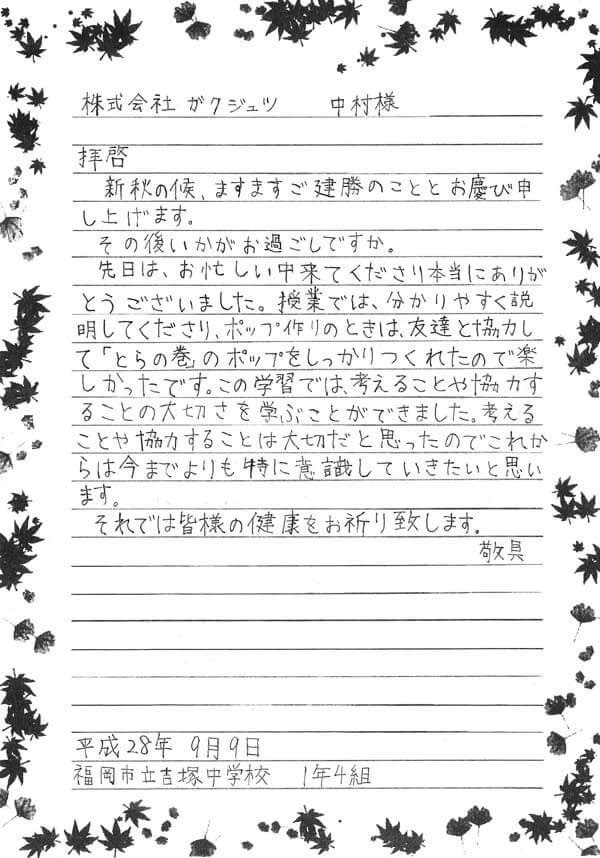 株式会社 ガクジュツ 中村様
拝啓
新秋の候、ますますご建勝のこととお慶び申
し上げます。
その後いかがお過ごしですか。
先日は、お忙しい中来てくださり本当にありが
とうございました。授業では、分かりやすく説
明してくださり、ポップ作りのときは、友達と協力し
て「とらの巻」のポップをしっかりつくれたので楽
しかったです。この学習では、考えることや協力す
ることの大切さを学ぶことができました。考える
ことや協力することは大切だと思ったのでこれか
らは今までよりも特に意識していきたいと思い
ます。
それでは皆様の健康をお祈り致します。
敬具
平成28年 9月9日
福岡市立吉塚中学校 1年4組